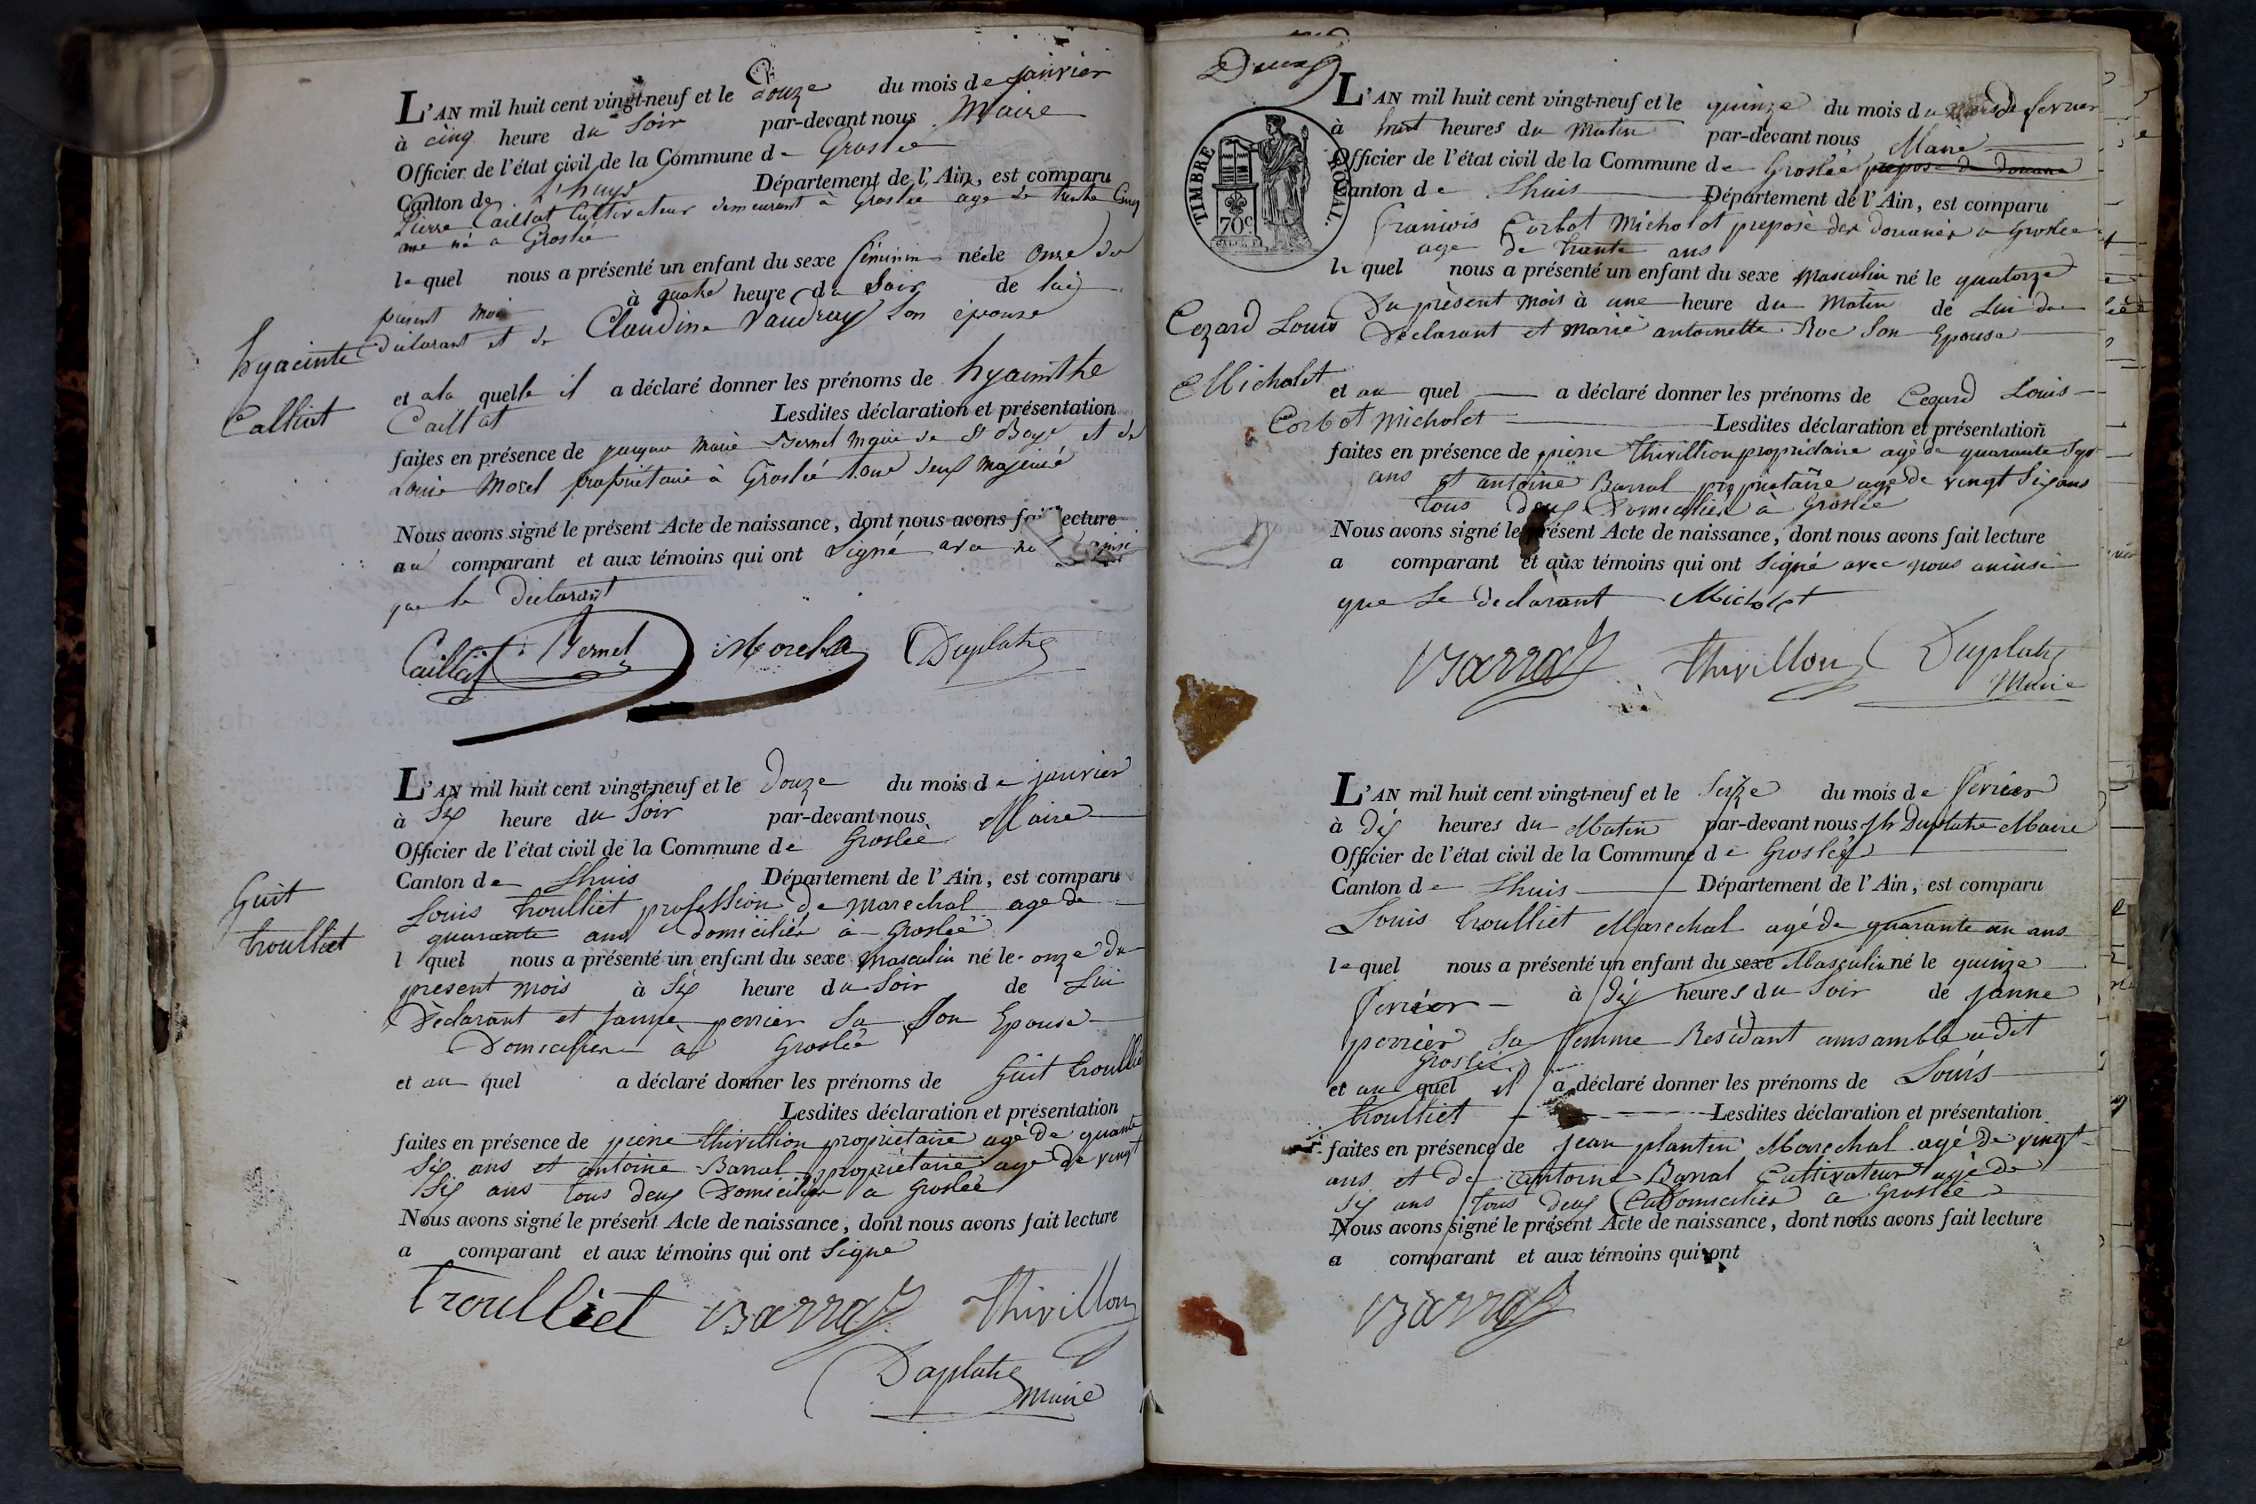 L'AN mil huit cent vingt-neuf et le Douze du mois de janvier
à cinq heure du Soir par-devant nous Maire
Officier de l'état civil de la Commune de Groslée
Canton de Lhuys Département de l'Ain, est comparu
Pierre Caillat Cultivateur demeurant à Groslée age de trente Cinq
ans né a Groslée
le quel nous a présenté un enfant du sexe féminin née le Onze du
présent mois à quatre heure du Soir de lui
déclarant et de Claudine Vaudray Son épouse
hyacinte
Calliat
et a la quelle il a déclaré donner les prénoms de hyacinthe
Caillat Lesdites déclaration et présentation
faites en présence de marie Bernel et de
Louis Morel propriétaire à Groslée tous deux
Nous avons signé le présent Acte de naissance, dont nous avons fait lecture
au comparant et aux témoins qui ont Signé avec ainsi
que le Déclarant
Caillat Bernel Morel Duplatre
L'AN mil huit cent vingt-neuf et le Douze du mois de janvier
à Six heure du Soir par-devant nous Maire
Officier de l'état civil de la Commune de Groslée
Canton de Lhuis Département de l'Ain, est comparu
Guit
troulliet
Louis troulliet profession de marechal age de
quarante ans domicilié à Groslée
l quel nous a présenté un enfant du sexe masculin né le onze du
present mois à Six heure du Soir de Lui
Déclarant et perrier Sa Son Epouse
Domicilier a Groslée
et au quel a déclaré donner les prénoms de Guit troulliet
Lesdites déclaration et présentation
faites en présence de piere thivillion propriétaire agé de quarante
Six ans et antoine Barral propriétaire agé de vingt
Six ans tous deux Domicilier a Groslée
Nous avons signé le présent Acte de naissance, dont nous avons fait lecture
a comparant et aux témoins qui ont Signé
Troulliet Barral Thivillon
Duplatre
maire
Deux
TIMBRE ROYAL.
70c
L'AN mil huit cent vingt-neuf et le quinze du mois du mois de fevrier
à huit heures du Matin par-devant nous Maire
Officier de l'état civil de la Commune de Groslée preposé de douane
Canton de Lhuis Département de l'Ain, est comparu
francois Corbot Micholot preposé des douanes a Groslée
age de trante ans
le quel nous a présenté un enfant du sexe masculin né le quatorze
Du présent mois à une heure du Matin de Lui de
Cezard Louis
Declarant et Marié antoinette Roc Son Epouse
Micholet
et au quel a déclaré donner les prénoms de Cezard Louis
Corbot Micholet Lesdites déclaration et présentation
faites en présence de piere thivillion propriétaire agé de quarante Sept
ans et antoine Barral propriétaire agé de vingt Six ans
tous deux Domicilier à Groslée
Nous avons signé le présent Acte de naissance, dont nous avons fait lecture
a comparant et aux témoins qui ont Signé avec nous aninsi
que Le declarant Micholot
Barral Thivillon Duplatre
Maire
L'AN mil huit cent vingt-neuf et le Seize du mois de fevrier
à Dix heures du Matin par-devant nous Duplatre Maire
Officier de l'état civil de la Commune de Groslée
Canton de Lhuis Département de l'Ain, est comparu
Louis troulliet Marechal agé de quarante un ans
le quel nous a présenté un enfant du sexe Masculin né le quinze
fevrier à dix heures du Soir de janne
perrier Sa femme Residant ansamble audit
Groslée
et au quel il a déclaré donner les prénoms de Louis
troulliet Lesdites déclaration et présentation
faites en présence de jean plantin Marechal agé de vingt
ans et de antoine Barral Cultivateur agé de
Six ans tous deux Domicilier a Groslée
Nous avons signé le présent Acte de naissance, dont nous avons fait lecture
a comparant et aux témoins qui ont
Barral